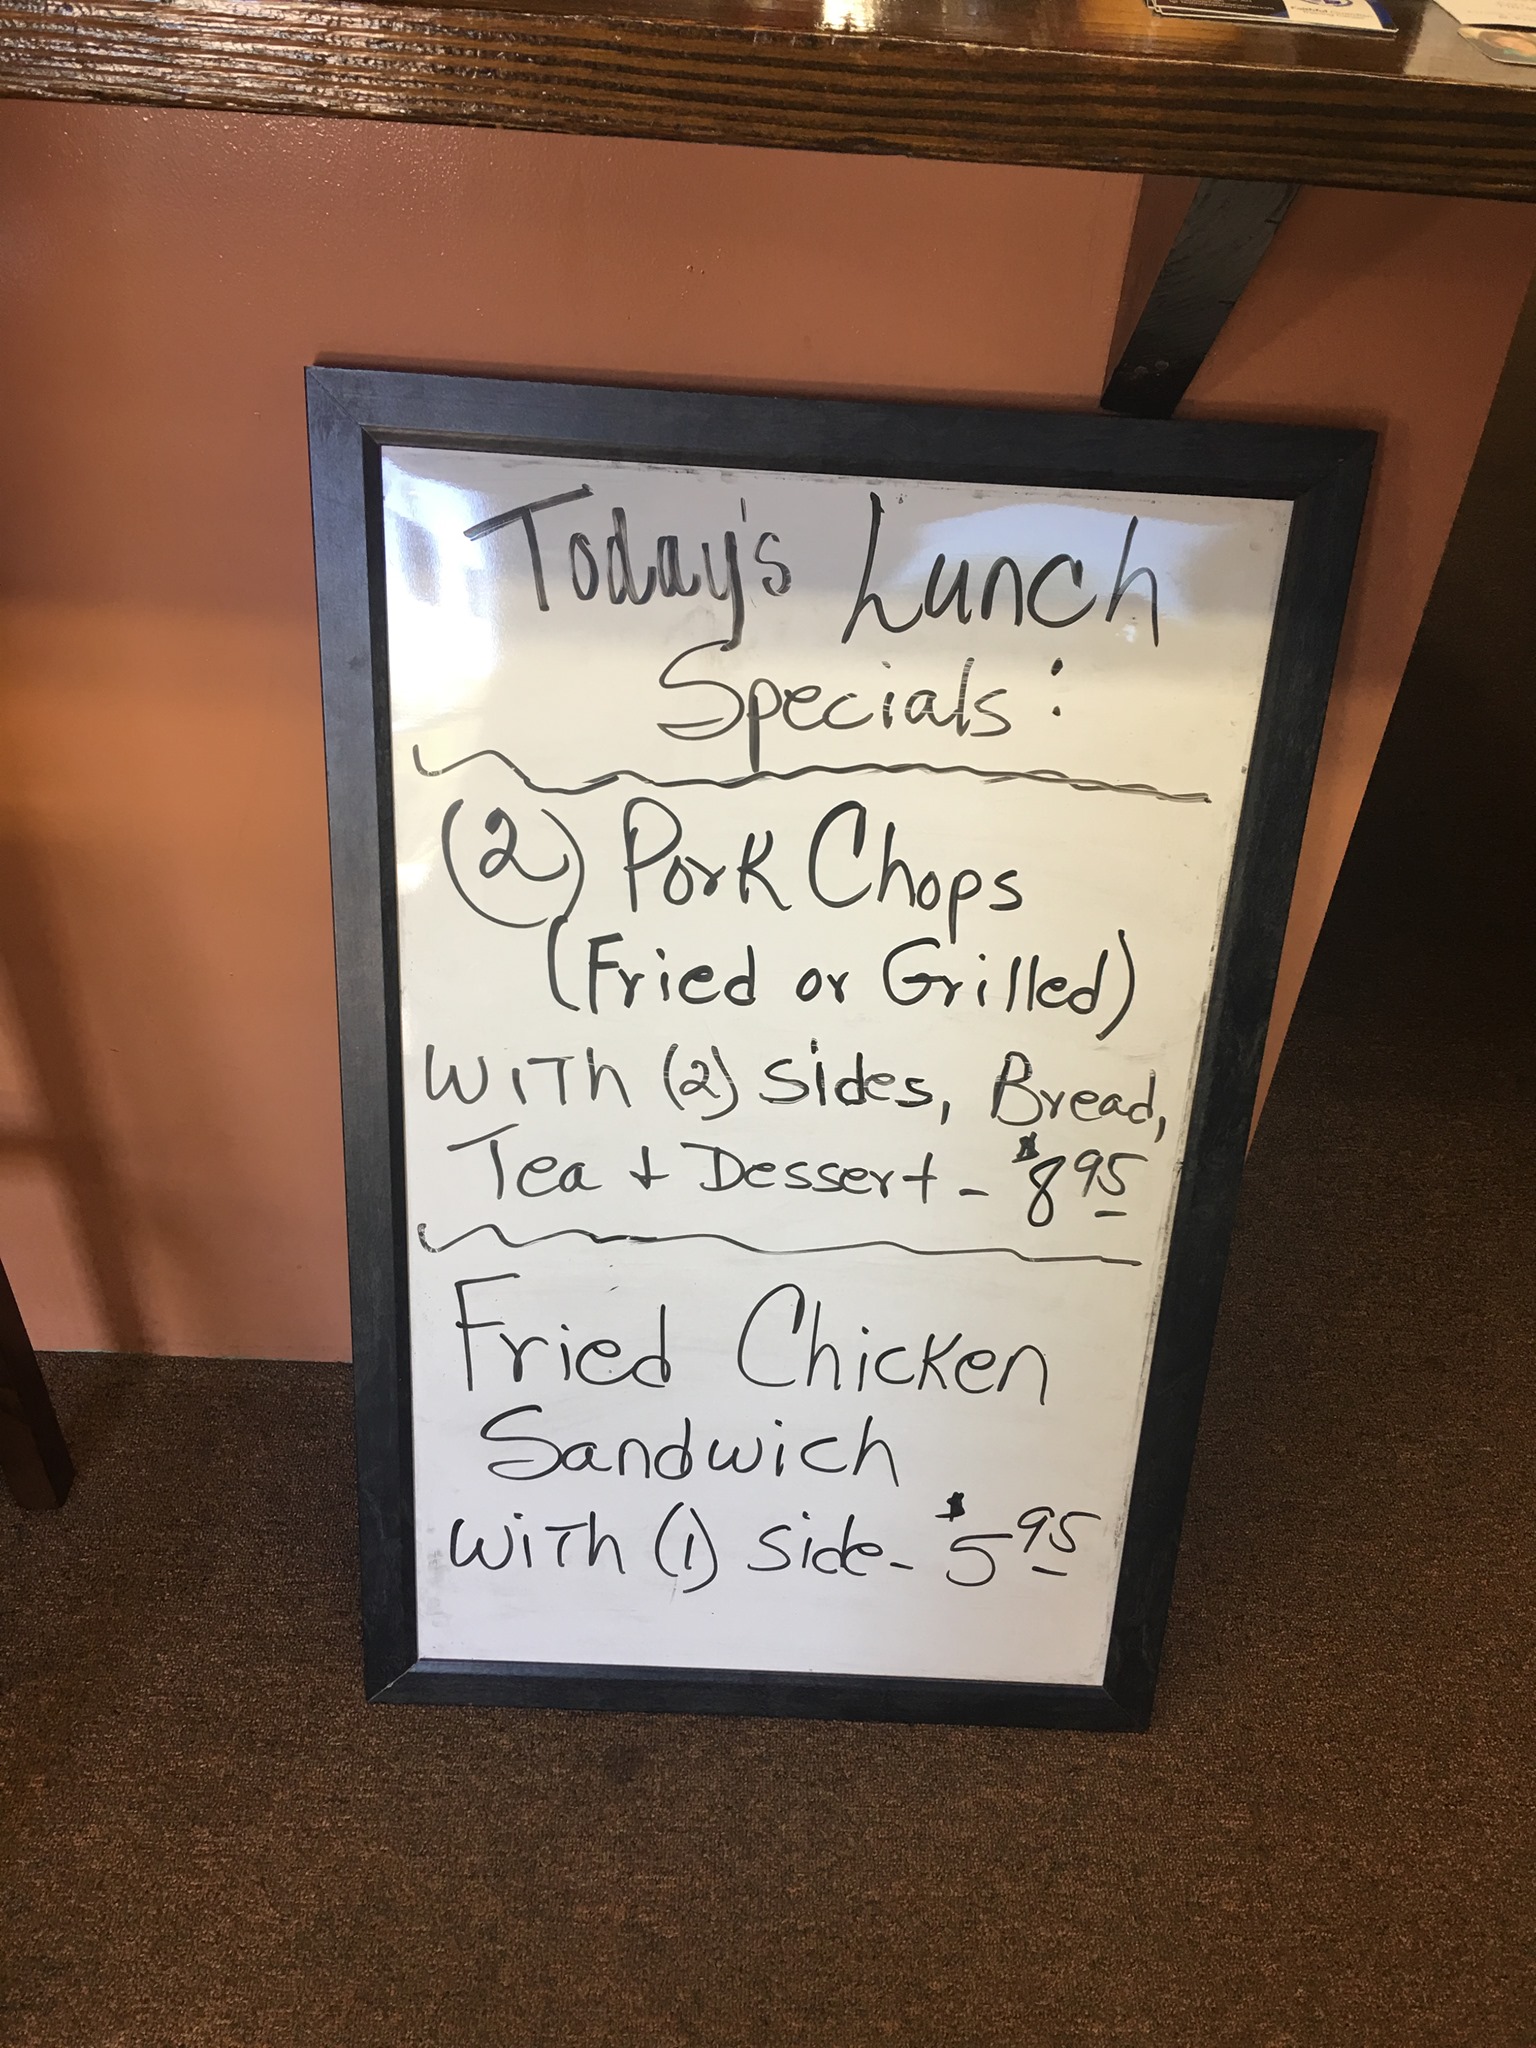 Today's Lunch
Specials:
(2) Pork Chops
(Fried or Grilled)
With (2) sides, Bread,
Tea + Dessert - $8 95
Fried Chicken
Sandwich
With (1) side - $5 95